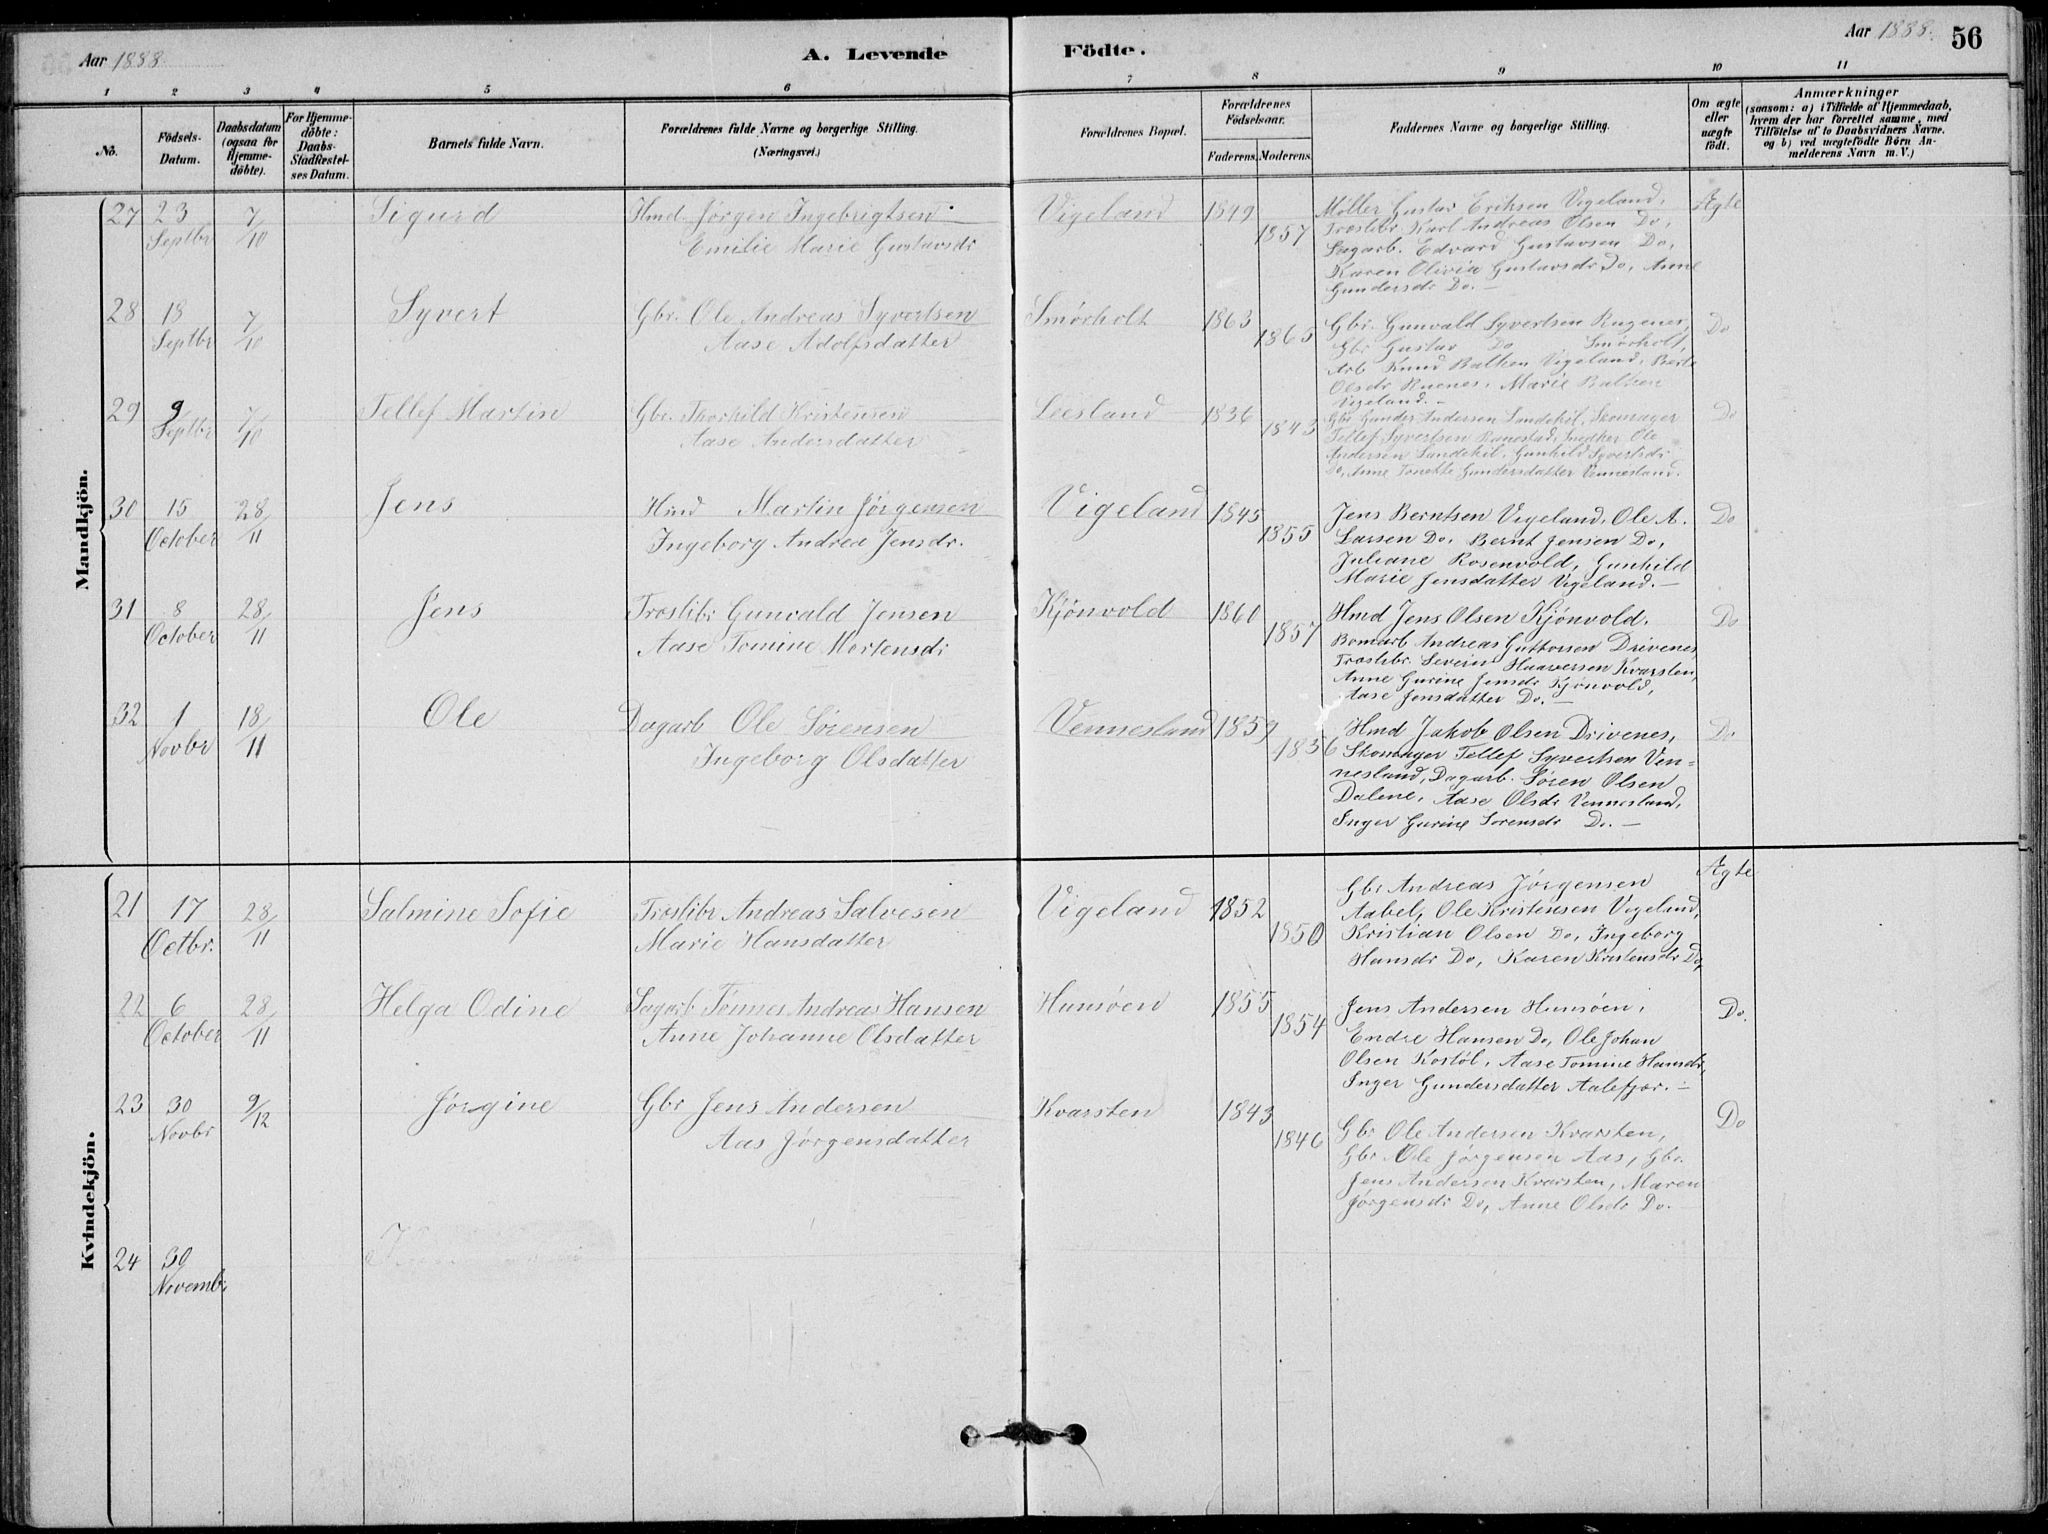 Aar 1888.
A. Levende Födte.
Aar 1888.
56
1 2 3 4 5 6 7 8 9 10 11
No.
Födsels-Datum.
Daabsdatum (ogsaa for Hjemme-döbte).
For Hjemme-döbte: Daabs-Stadfæstel-ses Datum.
Barnets fulde Navn.
Forældrenes fulde Navne og borgerlige Stilling.
(Næringsvei.)
Forældrenes Bopæl.
Forældrenes Födselsaar.
Faderens. Moderens.
Faddernes Navne og borgerlige Stilling.
Om ægte eller uægte födt.
Anmærkninger
(saasom: a) i Tilfælde af Hjemmedaab,
hvem der har forrettet samme, med
Tilföielse af to Daabsvidners Navne.
og b) ved uægtefödte Börn An-
melderens Navn m. V.)
Mandkjön.
27 23 Septbr 7/10 Sigurd Hmd Jørgen Ingebrigtsen Vigeland 1849 Møller Gustav Eriksen Vigeland, Ægte
Emilie Marie Gustavsdr 1857 Træslibr. Karl Andreas Olsen Do,
Sagarb. Edvard Gustavsen Do,
Karen Olivia Gustavsdr Do, Anne
Gundersdr Do. —
28 18 Septbr 7/10 Syvert Gbr. Ole Andreas Syvertsen Smørholt 1863 Gbr. Gunvald Syvertsen Do
Aase Adolfsdatter 1865 Gbr Gustav Do Smørholt,
Arb Knud Balken Vigeland, Berte
Olsdr Ruenes, Marie Balken
Vigeland. —
29 9 Septbr 7/10 Tellef Martin Gbr. Thorkild Kristensen Leesland 1836 Gbr Gunder Andersen Lundekil, Skomager Do
Aase Andersdatter 1843 Tellef Syvertsen Ole
Andersen Lundekil, Gunhild Syvertsdr
Do, Anne Tonette Gundersdatter Vennesland.
30 15 October 28/11 Jens Hmd Martin Jørgensen Vigeland 1845 Jens Berntsen Vigeland, Ole A. Do
Ingeborg Andrea Jensdr. 1855 Larsen Do, Bernt Jensen Do,
Juliane Rosenvold, Gunhild
Marie Jensdatter Vigeland. —
31 8 October 28/11 Jens Træslibr Gunvald Jensen Kjønvold 1860 Hmd Jens Olsen Kjønvold, Do
Aase Tomine Mortensdr 1857 Bomarb Andreas Guttorsen Drivenes
Træslibr. Severin Haaversen Kvarsten,
Anne Gurine Jensdr Kjønvold,
Aase Jensdatter Do. —
32 1 Novbr 18/11 Ole Dagarb Ole Sørensen Vennesland 1859 Hmd Jakob Olsen Drivenes, Do
Ingeborg Olsdatter 1856 Skomager Tellef Syvertsen Ven-
nesland, Dagarb. Søren Olsen
Dalene, Aase Olsdr Vennesland,
Inger Gurine Sørensdr Do. —
Kvindekjön.
21 17 Octbr. 28/11 Salmine Sofie Træslibr Andreas Salvesen Vigeland 1852 Gbr Andreas Jørgensen Ægte
Marie Hansdatter 1850 Aabel, Ole Kristensen Vigeland,
Kristian Olsen Do, Ingeborg
Hansdr Do, Karen Kristensdr Do,
22 6 October 28/11 Helga Odine Sagarb Tønnes Andreas Hansen Hunsøen 1855 Jens Andersen Hunsøen, Do.
Anne Johanne Olsdatter 1854 Endre Hansen Do, Ole Johan
Olsen Kostøl, Aase Tomine Hansdr,
Inger Gundersdatter Aalefjær. —
23 30 Novbr 9/12 Jørgine Gbr Jens Andersen Kvarsten 1843 Do
Aas Jørgensdatter 1846 Gbr Ole Andersen Kvarsten,
Gbr Ole Jørgensen Aas, Gbr.
Jens Andersen Kvarsten, Maren
Jørgensdr Do, Anne Olsdr Do. —
24 30 Novembr